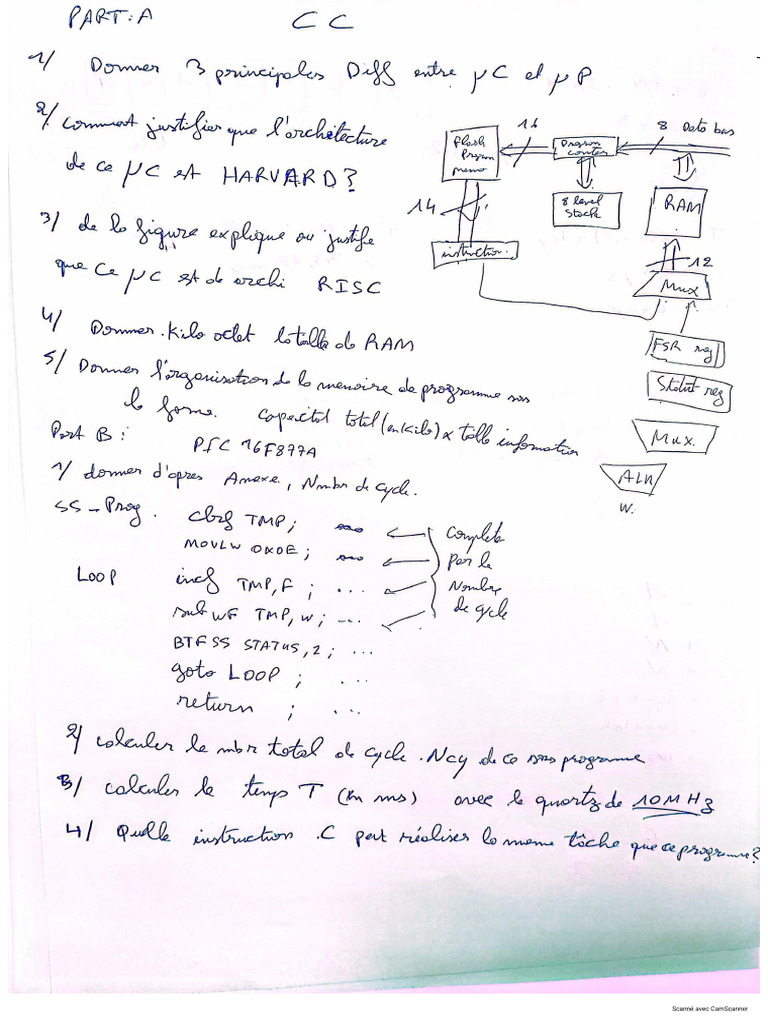 PART: A CC
1/ Donner 3 principales Diff entre µC et µP
2/ comment justifier que l'architecture
de ce µC est HARVARD?
3/ de la figure explique ou justifie
que ce µC est de archi RISC
4/ Donner . Kilo octet la taille de RAM
5/ Donner l'organisation de la memoire de programme sous
la forme. capacital total (en kilo) x taille information
Flash
Program
memo
16
Program
conter
8 Data bus
8 level
Stack
RAM
14
instruction.
12
Mux
FSR reg
Statut reg
Mux.
ALU
W.
Part B: PIC 16F877A
1/ donner d'apres Anexe, Nmbr de cycle.
SS_Prog. clrf TMP;
MOVLW 0X0E;
LOOP incf TMP,F ; ...
subWF TMP,W; ...
BTFSS STATUS,2; ...
goto LOOP ; ...
return ; ...
Complete
par le
Nombre
de cycle
2/ calculer le nbr total de cycle . Ncy de ce sous programme
3/ calculer le temps T (en ms) avec le quartz de 10MHz
4/ Quelle instruction .C peut réaliser la meme tâche que ce programme?
Scanné avec CamScanner